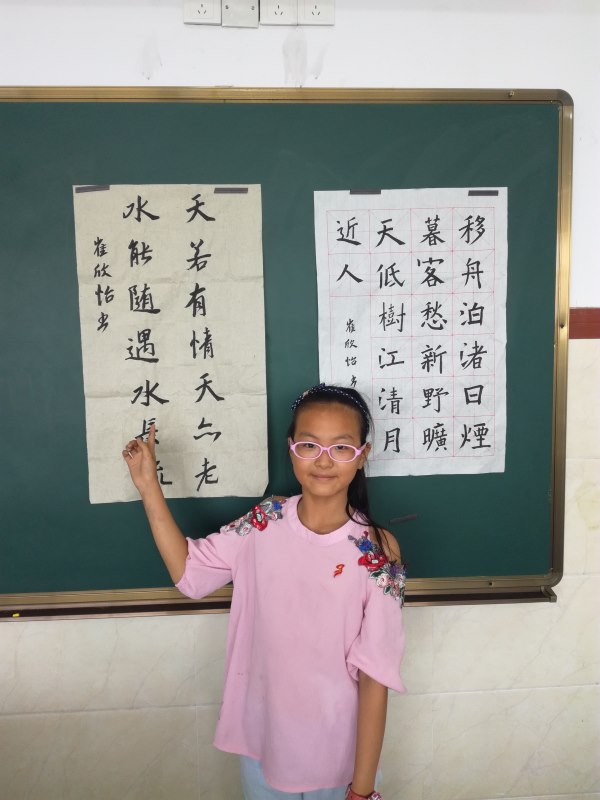 天若有情天亦老
水能随遇水長流
崔欣怡书
移舟泊渚日煙
暮客愁新野曠
天低樹江清月
近人
崔欣怡书